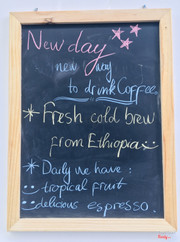 New day
new way
to drink Coffee
* Fresh cold brew
from Ethiopia
* Daily we have :
tropical fruit
delicious espresso .